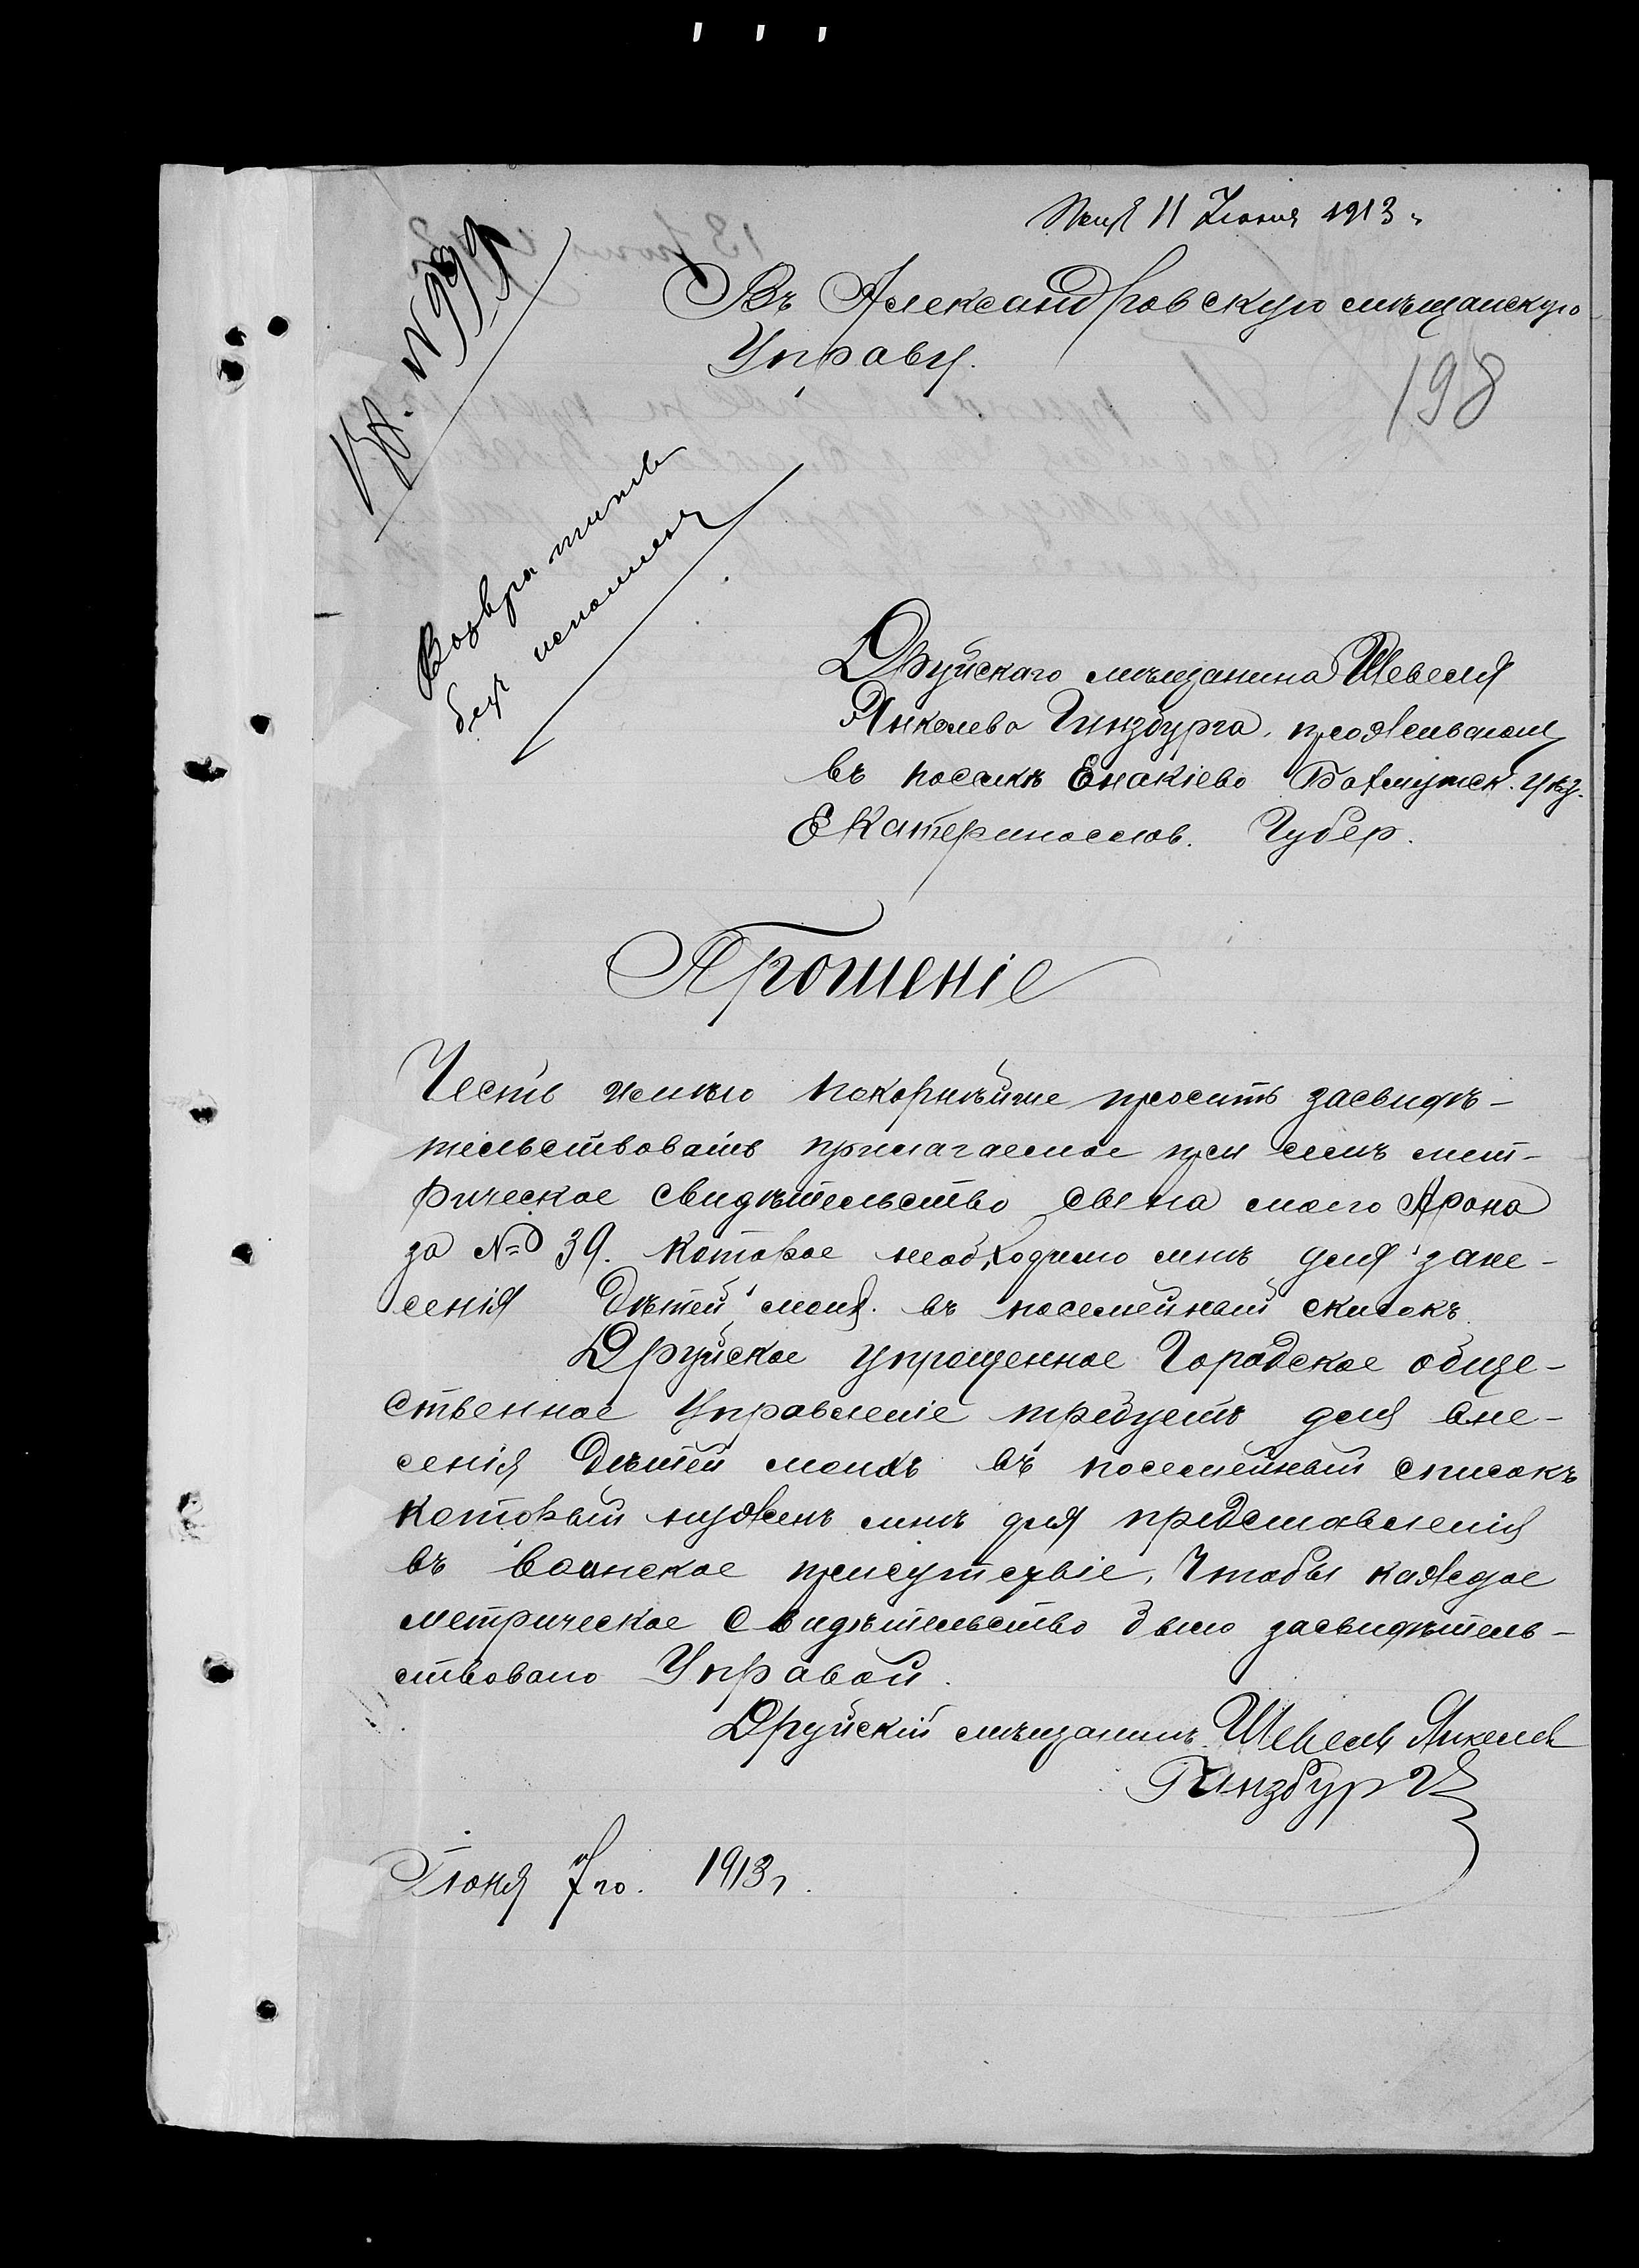 11 Іюня 1913 г
Въ Александровскую мѣщанскую
Управу.
198
Вх. № 999
Возвратить
безъ исполненія
Друйскаго мѣщанина Шевеля
Янкелева Гинзбурга, проживающ
въ поселкѣ Енакіево Бахмутск. уѣз.
Екатеринослов. Губер.
Прошеніе
Честь имѣю покорнѣйше просить засвидѣ-
тельствовать прилагаемое при семъ мет-
рическое свидѣтельство сына моего Арона
за № 39. которое необходимо мнѣ для зане-
сенія дѣтей моих. въ посемейный списокъ.
Друйское упрощенное Городское обще-
ственное Управленіе требуетъ для вне-
сенія дѣтей моихъ въ посемейный списокъ
который нуженъ мнѣ для представленія
въ воинское присутствіе, чтобы каждое
метрическое свидѣтельство было засвидѣтель-
ствовано Управой.
Друйскій мѣщанинъ Шевель Янкелев
Гинзбург
Іюня 7го. 1913 г.